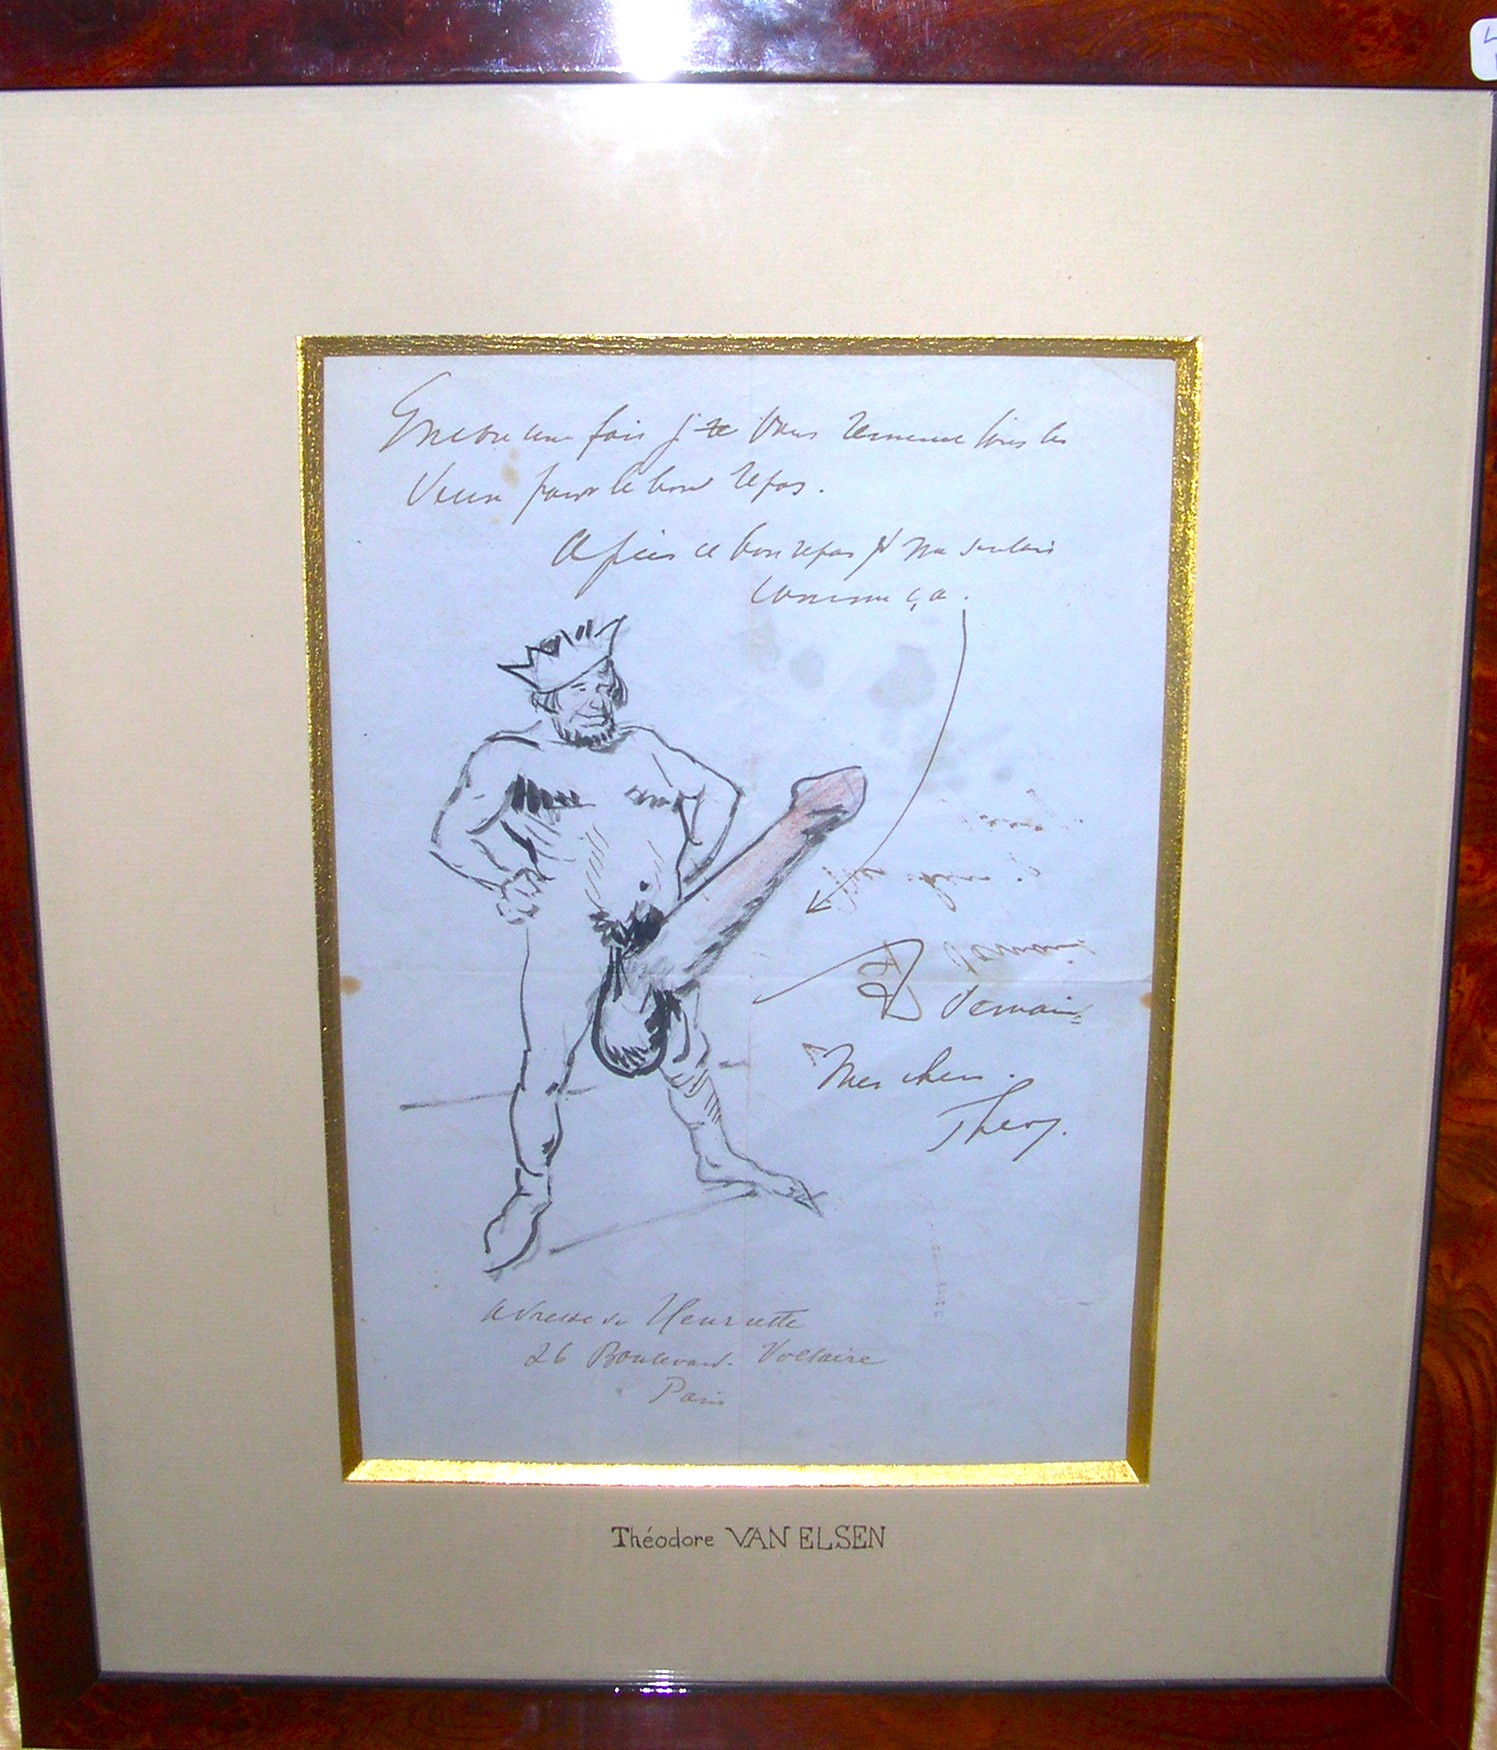 Encore une fois je vous remercie tous les
deux pour le bon repas.
Après ce bon repas je me sentais
comme ça.
Demain
Mes chers.
Théo.
adresse de Henriette
26 Boulevard Voltaire
Paris
Théodore VAN ELSEN